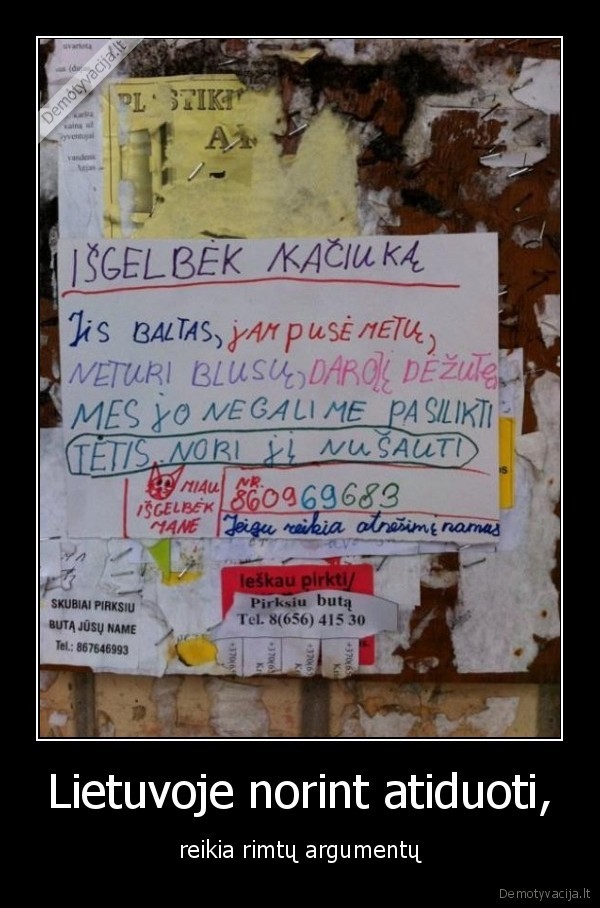 Demotyvacija.lt
uvartotą
PL STIKI
IŠGELBĖK KAČIUKĄ
Jis BALTAS, jAM pUSĖ METŲ,
NETURI BLUSŲ, DARO Į DĖŽUTĘ,
MES jO NEGALIME PASILIKTI
TĖTIS NORI jį NUŠAUTI
MIAU
IŠGELBĖK
MANE
NR.
860969683
Jeigu reikia atnešim į namus
SKUBIAI PIRKSIU
BUTĄ JŪSŲ NAME
Tel.: 867646993
Ieškau pirkti/
Pirksiu butą
Tel. 8(656) 415 30
Lietuvoje norint atiduoti,
reikia rimtų argumentų
Demotyvacija.lt